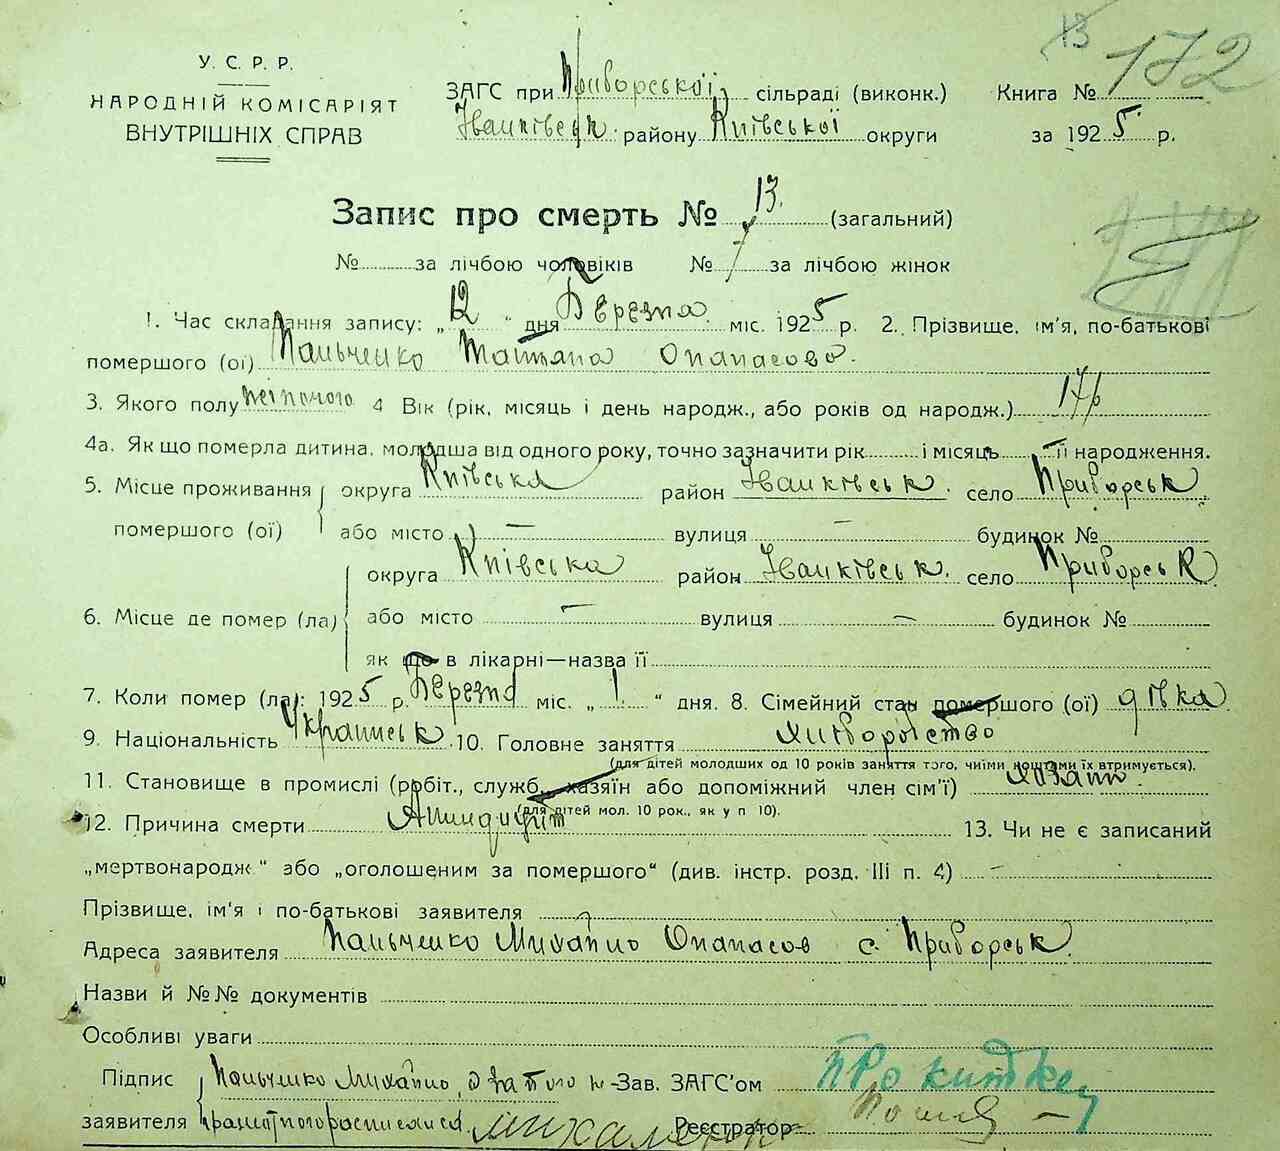 13 172
У. С. Р. Р.
НАРОДНІЙ КОМІСАРІЯТ
ВНУТРІШНІХ СПРАВ
ЗАГС при Приборської сільраді (виконк.) Книга №
Іванківськ. району Київської округи за 1925 р.
Запис про смерть № 13. (загальний)
№ за лічбою чоловіків № 7 за лічбою жінок
1. Час складання запису: „12 “ дня Березня міс. 1925 р. 2. Прізвище, ім'я, по-батькові
помершого (ої) Панченко Тат Опанасова.
3. Якого полу 4 Вік (рік, місяць і день народж., або років од народж.) 17р
4а. Як що померла дитина, молодша від одного року, точно зазначити рік і місяць її народження.
5. Місце проживання округа Київська район Іванківськ. село Приборськ
помершого (ої) або місто — вулиця — будинок №
округа Київська район Іванківськ. село Приборськ
6. Місце де помер (ла) або місто — вулиця — будинок №
як що в лікарні—назва її
7. Коли помер (ла): 1925 р. Березня міс. „1“ дня. 8. Сімейний стан помершого (ої) дівка
9. Національність Українськ. 10. Головне заняття Хліборобство
(для дітей молодших од 10 років заняття того, чиїми коштами їх втримується).
11. Становище в промислі (робіт., служб., хазяїн або допоміжний член сім'ї)
(для дітей мол. 10 рок., як у п 10).
12. Причина смерти 13. Чи не є записаний
„мертвонародж“ або „оголошеним за помершого“ (див. інстр. розд. III п. 4) —
Прізвище, ім'я і по-батькові заявителя
Адреса заявителя Панченко Михайло Опанасов с. Приборськ
Назви й №№ документів
Особливі уваги
Підпис Панченко Михайло, Зав. ЗАГС'ом
заявителя Реєстратор